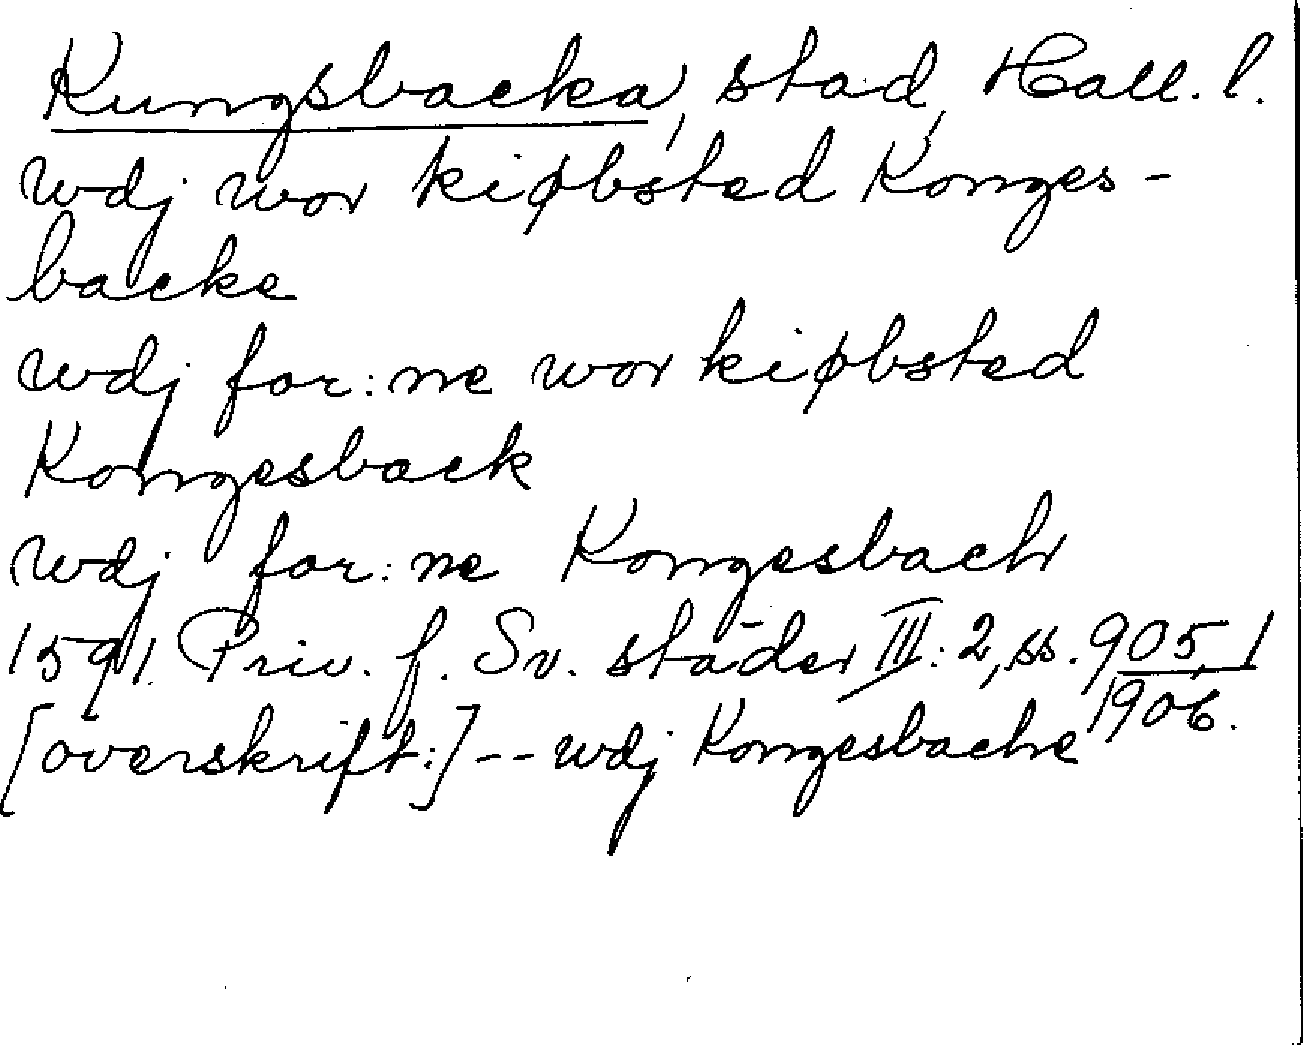 Kungsbacka, stad, Hall. l.
wdj wor kiøbsted Konges-
backe
wdj for:ne wor kiøbsted
Kongesback
wdj for:ne Kongesbach
1591 Priv. f. Sv. städer III: 2, ss. 905,
906.
[överskrift:] -- wdj Kongesbache